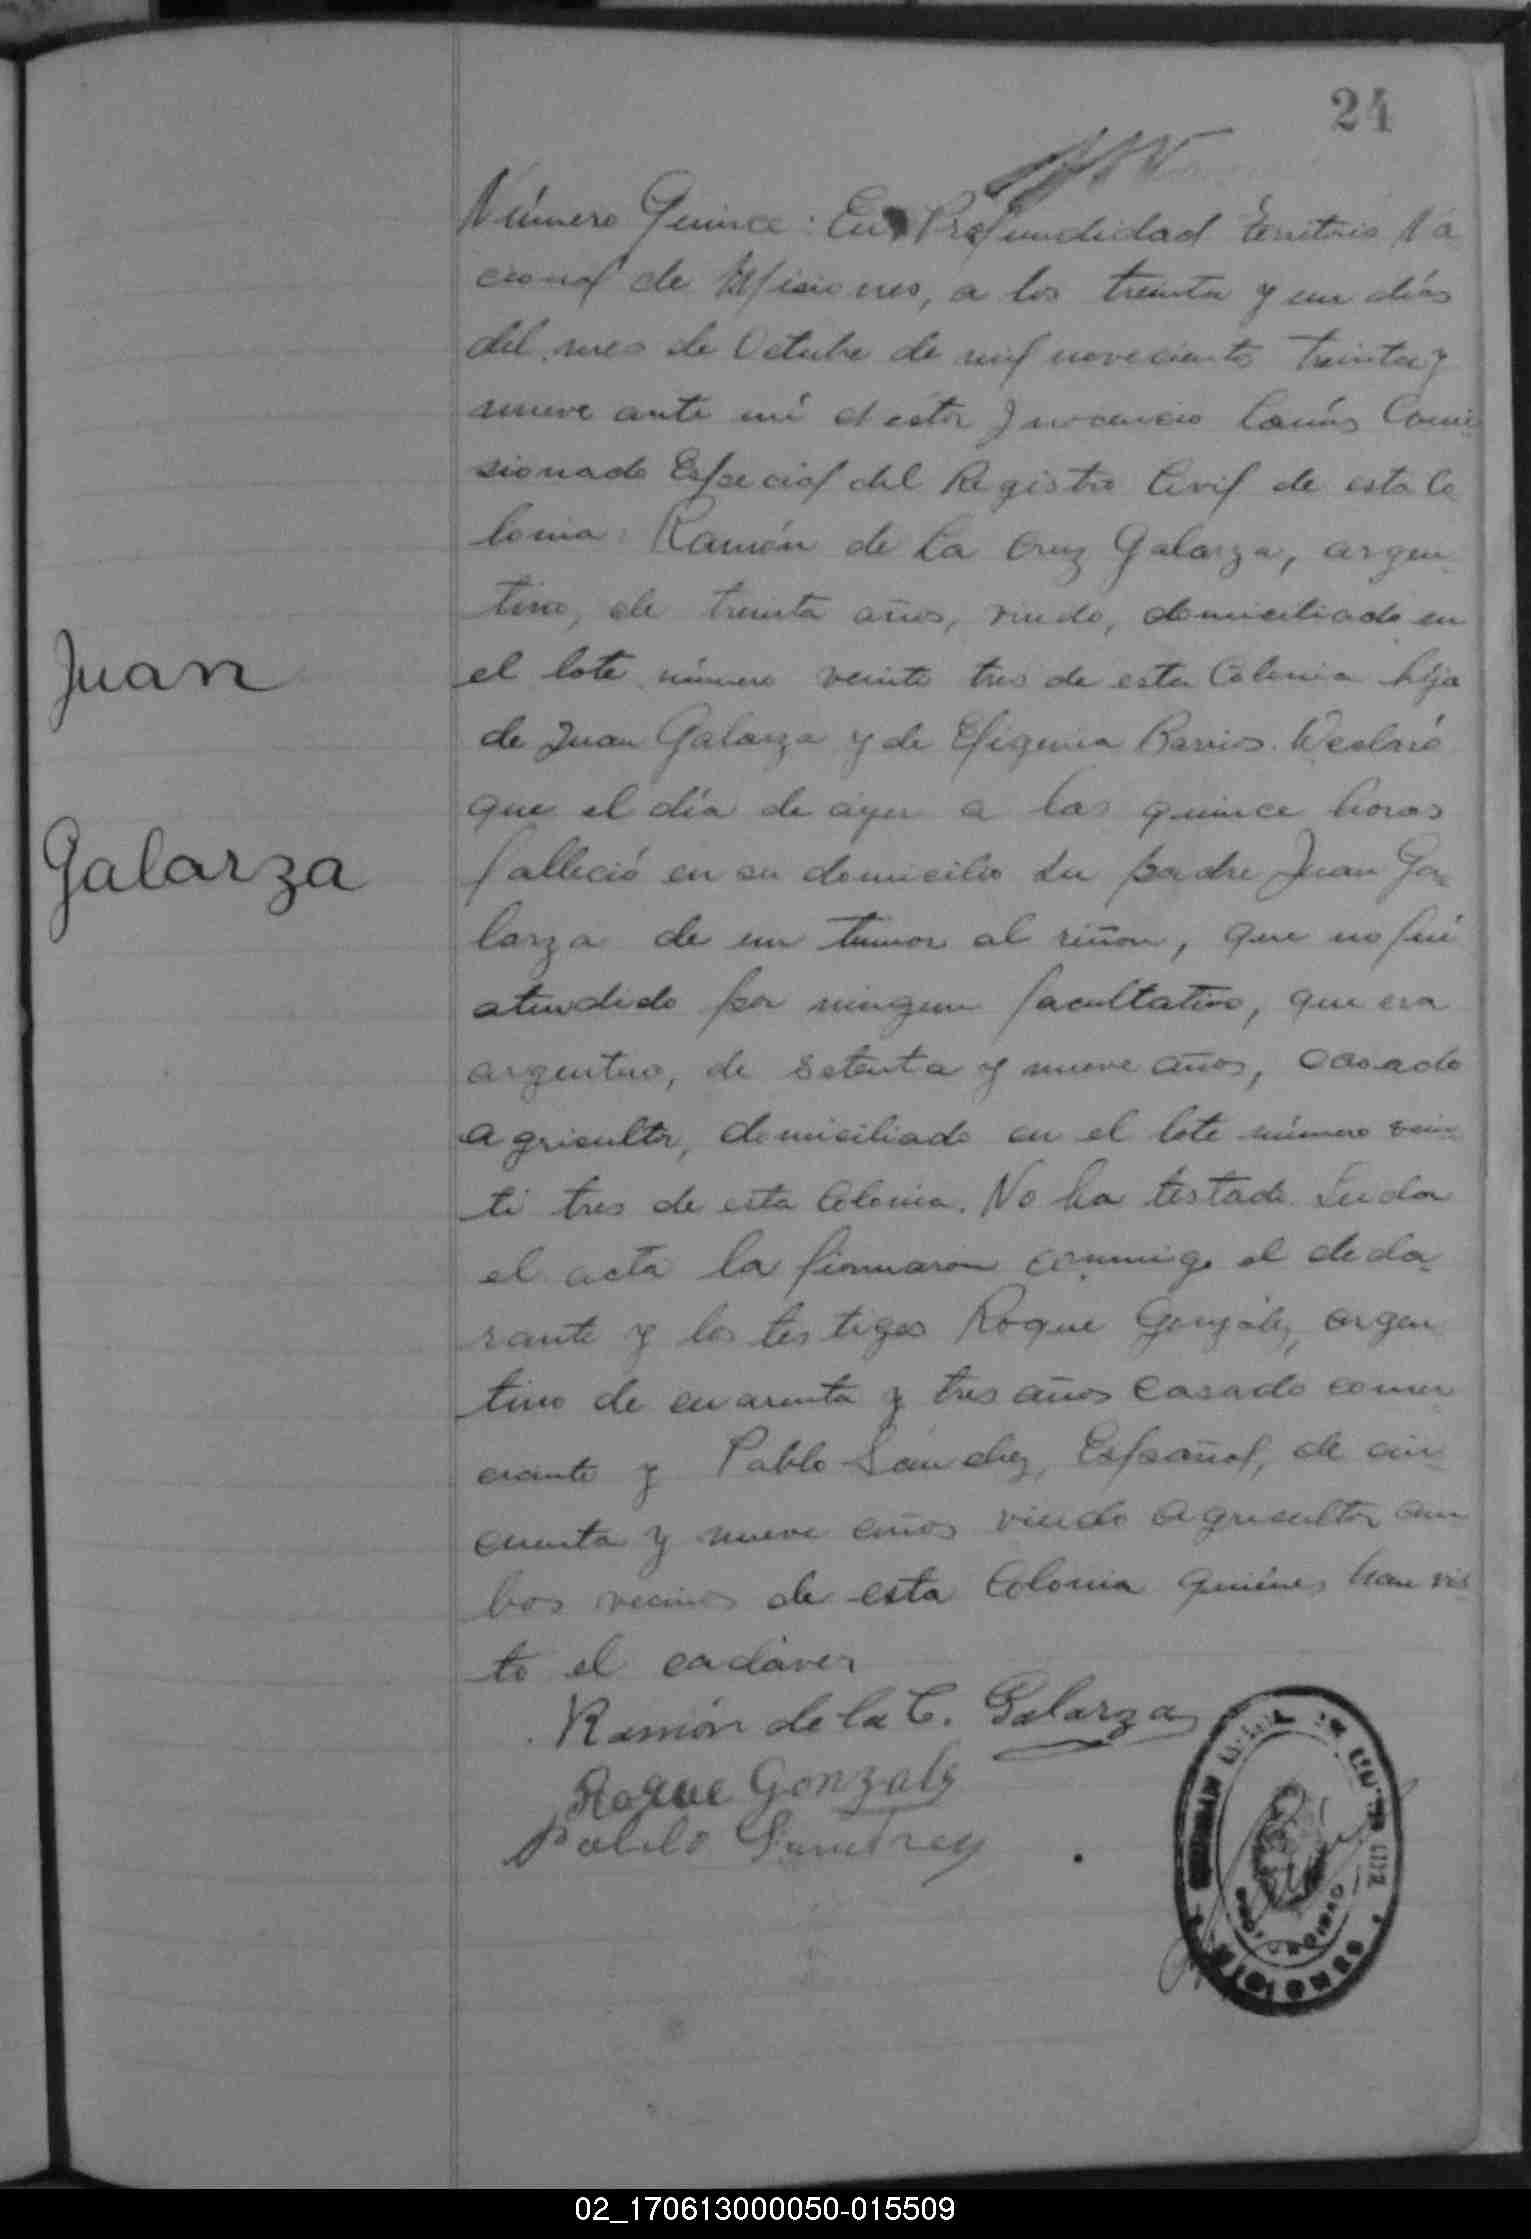 24
Número Quince: En Profundidad Territorio Na
cional de Misiones, a los treinta y un días
del mes de Octubre de mil novecientos treinta y
nueve ante mí Inocencio Lanús Comi
sionado Especial del Registro Civil de esta Co
lonia: Ramón de La Cruz Galarza, argen
tino, de treinta años, viudo, domiciliado en
el lote número veinte tres de esta Colonia hijo
de Juan Galarza y de Efigenia Barrios. Declaró
que el día de ayer a las quince horas
falleció en su domicilio su padre Juan Ga
larza de un tumor al riñon, que no fué
atendido por ningun facultativo, que era
argentino, de setenta y nueve años, casado
agricultor, domiciliado en el lote número vein
ti tres de esta Colonia. No ha testado. Leida
el acta la firmaron conmigo el decla
rante y los testigos Roque González, argen
tino de cuarenta y tres años casado comer
ciante y Pablo Sánchez, Español, de cin
cuenta y nueve años viudo agricultor am
bos vecinos de esta Colonia quiénes han vis
to el cadáver
Juan
Galarza
Ramón de la C. Galarza
Roque Gonzalz
Pablo
MISIONES
PROFUNDIDAD
02_170613000050-015509